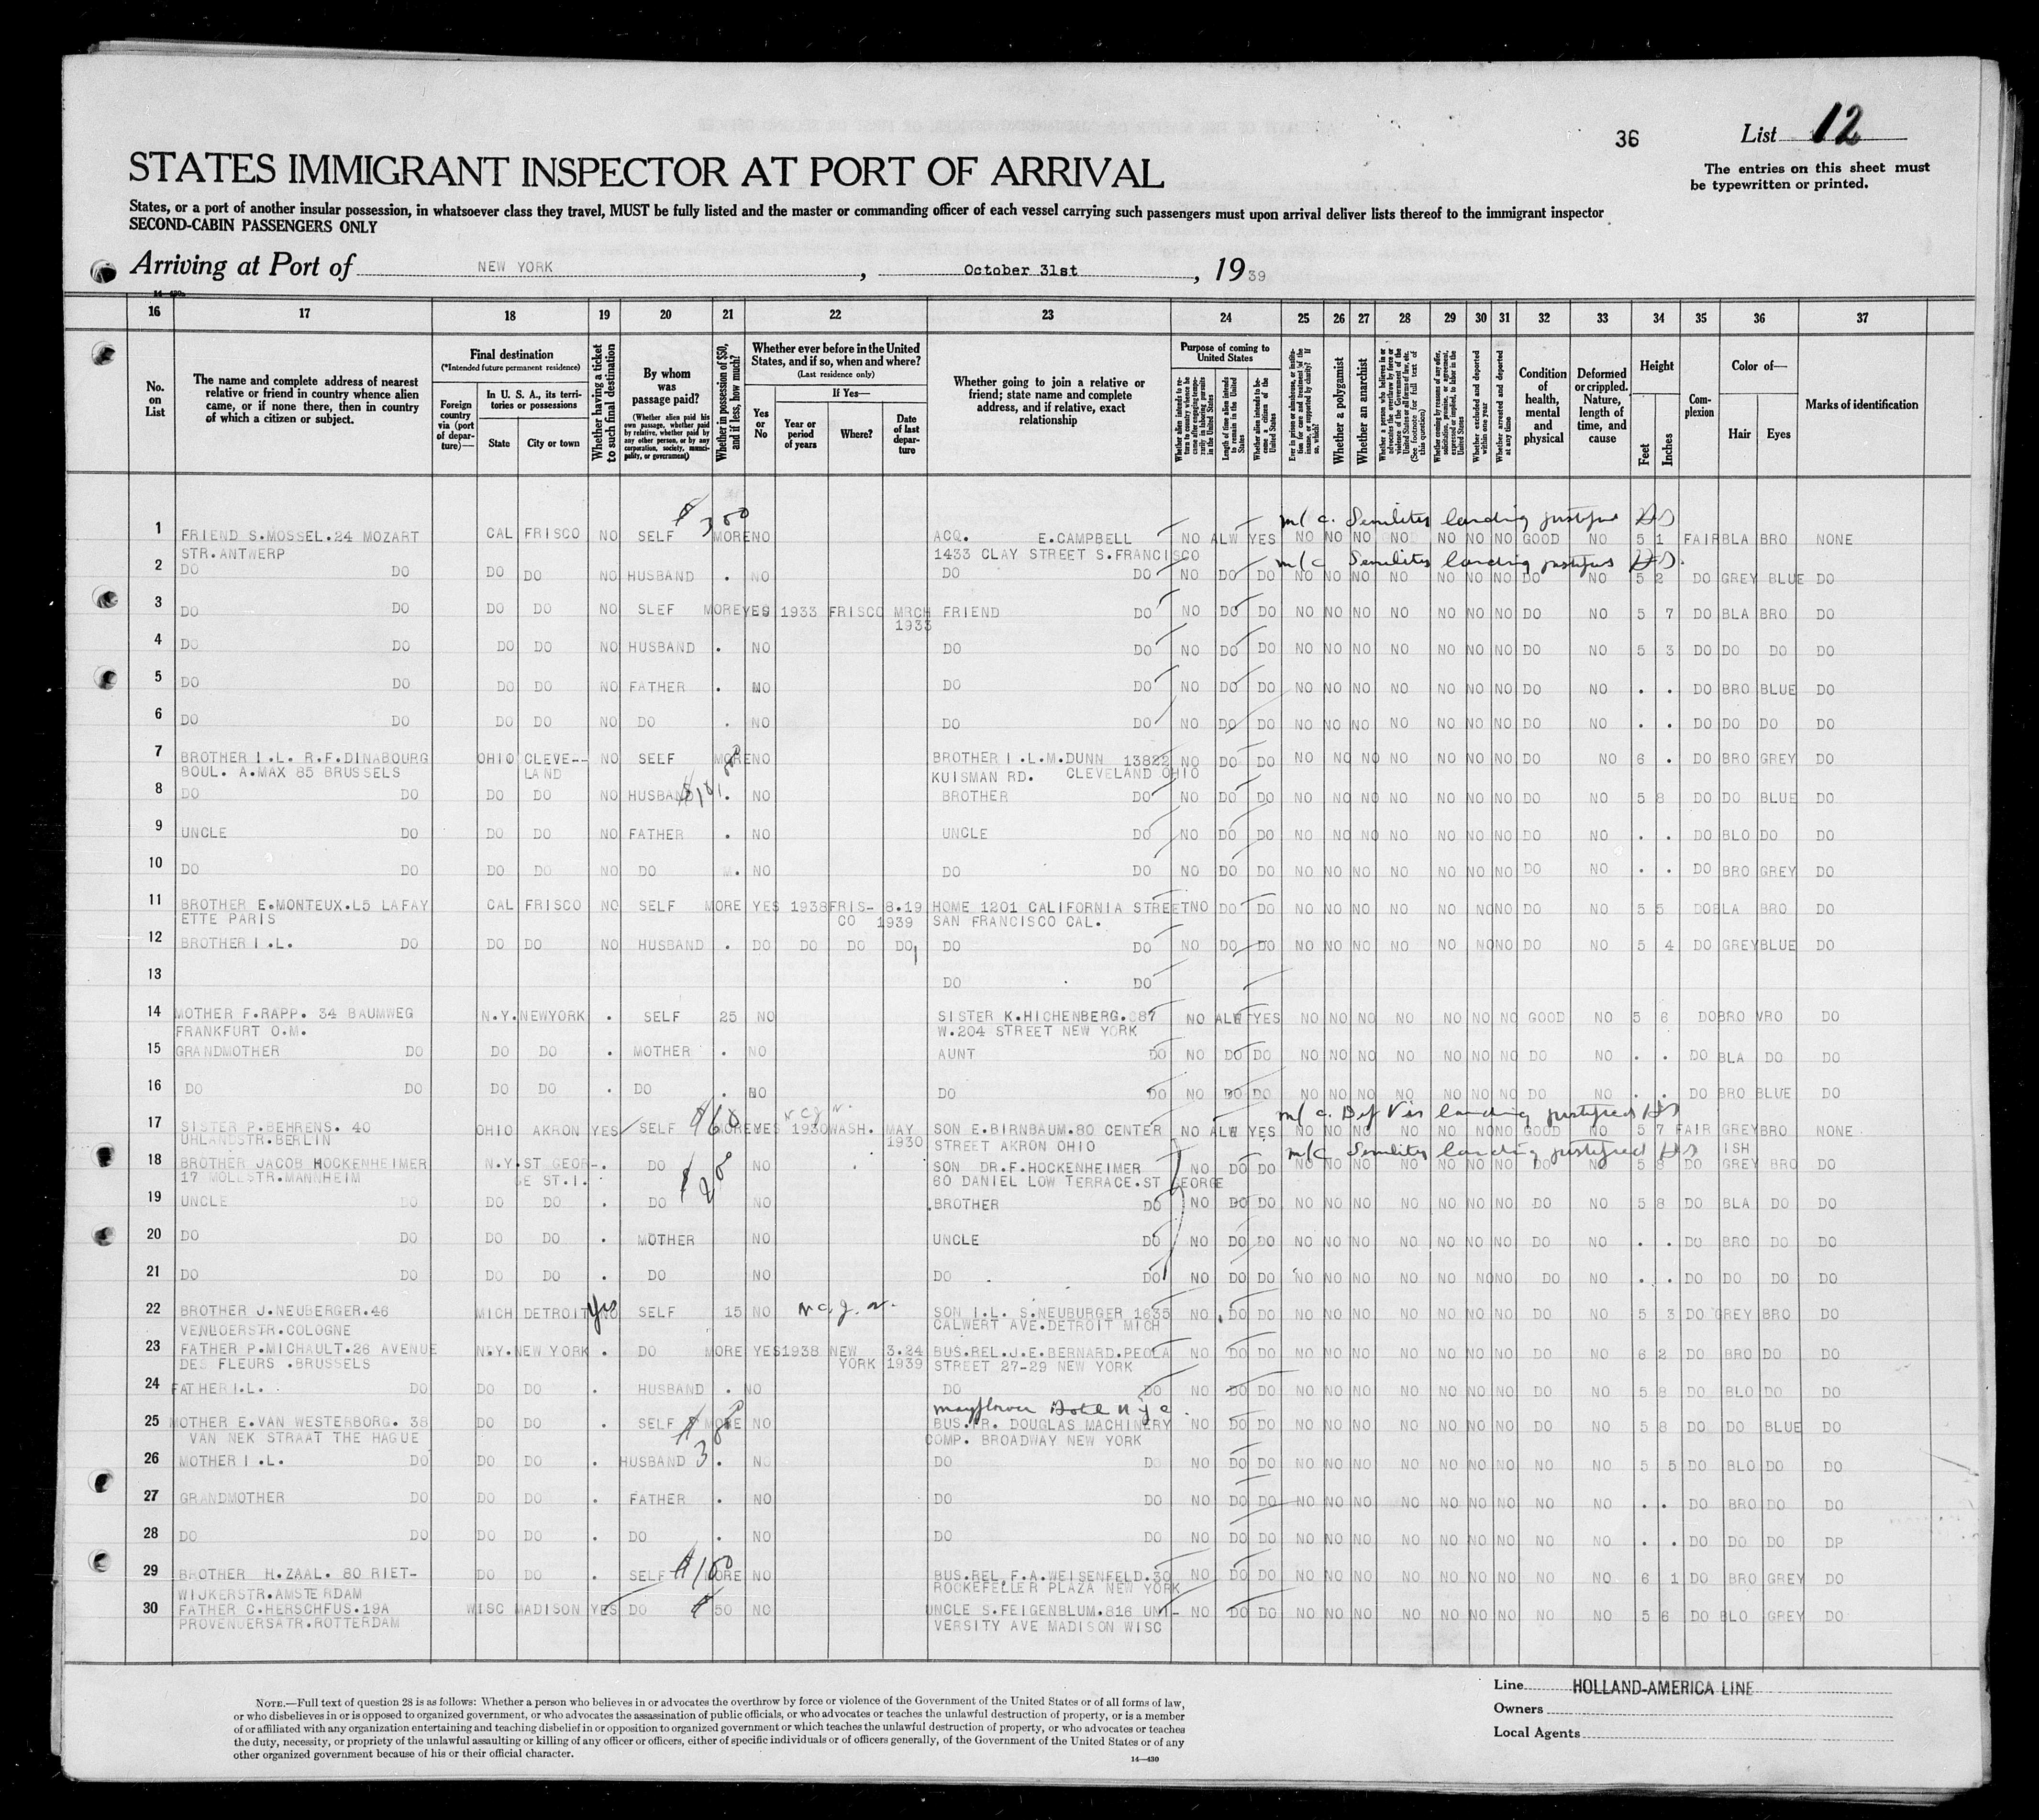 36
List 12
The entries on this sheet must
be typewritten or printed.
STATES IMMIGRANT INSPECTOR AT PORT OF ARRIVAL
States, or a port of another insular possession, in whatsoever class they travel, MUST be fully listed and the master or commanding officer of each vessel carrying such passengers must upon arrival deliver lists thereof to the immigrant inspector
SECOND-CABIN PASSENGERS ONLY
Arriving at Port of NEW YORK , October 31st , 1939
16 17 18 19 20 21 22 23 24 25 26 27 28 29 30 31 32 33 34 35 36 37
No. on List
The name and complete address of nearest relative or friend in country whence alien came, or if none there, then in country of which a citizen or subject.
Final destination
(*Intended future permanent residence)
Foreign country via (port of departure)—
In U. S. A., its territories or possessions
State City or town
Whether having a ticket to such final destination
By whom was passage paid?
(Whether alien paid his own passage, whether paid by relative, whether paid by any other person, or by any corporation, society, municipality, or government)
Whether in possession of $50, and if less, how much?
Whether ever before in the United States, and if so, when and where?
(Last residence only)
Yes or No
If Yes—
Year or period of years
Where?
Date of last departure
Whether going to join a relative or friend; state name and complete address, and if relative, exact relationship
Purpose of coming to United States
Length of time alien intends to remain in the United States
Whether alien intends to become a citizen of the United States
Whether a polygamist
Whether an anarchist
Whether excluded and deported within one year
Whether arrested and deported at any time
Condition of health, mental and physical
Deformed or crippled. Nature, length of time, and cause
Height
Feet Inches
Complexion
Color of—
Hair Eyes
Marks of identification
$ 300
m/c. Senilites landing justified
1 FRIEND S.MOSSEL.24 MOZART CAL FRISCO NO SELF MORE NO ACQ. E.CAMPBELL NO ALW YES NO NO NO NO NO NO NO GOOD NO 5 1 FAIR BLA BRO NONE
STR.ANTWERP 1433 CLAY STREET S.FRANCISCO
m/c Senilites landing justified
2 DO DO DO DO NO HUSBAND . NO DO DO NO DO DO NO NO NO NO NO NO NO DO NO 5 2 DO GREY BLUE DO
3 DO DO DO DO NO SLEF MORE YES 1933 FRISCO MRCH FRIEND DO NO DO DO NO NO NO NO NO NO NO DO NO 5 7 DO BLA BRO DO
1933
4 DO DO DO DO NO HUSBAND . NO DO DO NO DO DO NO NO NO NO NO NO NO DO NO 5 3 DO DO DO DO
5 DO DO DO DO NO FATHER . NO DO DO NO DO DO NO NO NO NO NO NO NO DO NO . . DO BRO BLUE DO
6 DO DO DO DO NO DO . NO DO DO NO DO DO NO NO NO NO NO NO NO DO NO . . DO DO DO DO
7 BROTHER I.L. R.F.DINABOURG OHIO CLEVE-- NO SELF MORE NO BROTHER I.L.M.DUNN 13822 NO DO DO NO NO NO NO NO NO NO DO NO 6 . DO BRO GREY DO
BOUL. A.MAX 85 BRUSSELS LAND KUISMAN RD. CLEVELAND OHIO
8 DO DO DO DO NO HUSBAND . NO BROTHER DO NO DO DO NO NO NO NO NO NO NO DO NO 5 8 DO DO BLUE DO
9 UNCLE DO DO DO NO FATHER . NO UNCLE DO NO DO DO NO NO NO NO NO NO NO DO NO . . DO BLO DO DO
10 DO DO DO DO NO DO M. NO DO DO NO DO DO NO NO NO NO NO NO NO DO NO . . DO BRO GREY DO
11 BROTHER E.MONTEUX.L5 LAFAY CAL FRISCO NO SELF MORE YES 1938 FRIS- 8.19 HOME 1201 CALIFORNIA STREET NO DO DO NO NO NO NO NO NO NO DO NO 5 5 DO BLA BRO DO
ETTE PARIS CO 1939 SAN FRANCISCO CAL.
12 BROTHER I.L. DO DO DO NO HUSBAND . DO DO DO DO DO DO NO DO DO NO NO NO NO NO NO NO DO NO 5 4 DO GREY BLUE DO
13 DO DO
14 MOTHER F.RAPP. 34 BAUMWEG N.Y. NEWYORK . SELF 25 NO SISTER K.HICHENBERG.387 NO ALW YES NO NO NO NO NO NO NO GOOD NO 5 6 DO BRO VRO DO
FRANKFURT O.M. W.204 STREET NEW YORK
15 GRANDMOTHER DO DO DO . MOTHER . NO AUNT DO NO DO DO NO NO NO NO NO NO NO DO NO . . DO BLA DO DO
16 DO DO DO DO . DO . NO DO DO NO DO DO NO NO NO NO NO NO NO DO NO . . DO BRO BLUE DO
$60 m/c. Def Vis landing justified
17 SISTER P.BEHRENS. 40 OHIO AKRON YES SELF MORE YES 1930 WASH. MAY SON E.BIRNBAUM.80 CENTER NO ALW YES NO NO NO NO NO NO NO GOOD NO 5 7 FAIR GREY BRO NONE
UHLANDSTR.BERLIN 1930 STREET AKRON OHIO ISH
m/c Senilites landing justified
18 BROTHER JACOB HOCKENHEIMER N.Y. ST GEOR- . DO NO SON DR.F.HOCKENHEIMER NO DO DO NO NO NO NO NO NO NO DO NO 5 8 DO GREY BRO DO
17 MOLLSTR.MANNHEIM GE ST.I. 60 DANIEL LOW TERRACE.ST GEORGE
19 UNCLE DO DO DO . DO NO BROTHER DO NO DO DO NO NO NO NO NO NO NO DO NO 5 8 DO BLA DO DO
20 DO DO DO DO . MOTHER NO UNCLE DO NO DO DO NO NO NO NO NO NO NO DO NO . . DO BRO DO DO
21 DO DO DO DO . DO NO DO DO NO DO DO NO NO NO NO NO NO NO DO NO . . DO DO DO DO
22 BROTHER J.NEUBERGER.46 MICH DETROIT Yes SELF 15 NO SON I.L. S.NEUBURGER 1635 NO DO DO NO NO NO NO NO NO NO DO NO 5 3 DO GREY BRO DO
VENLOERSTR.COLOGNE CALWERT AVE.DETROIT MICH
23 FATHER P.MICHAULT.26 AVENUE N.Y. NEW YORK . DO MORE YES 1938 NEW 3.24 BUS.REL.J.E.BERNARD.PEOLA NO DO DO NO NO NO NO NO NO NO DO NO 6 2 DO BRO DO DO
DES FLEURS .BRUSSELS YORK 1939 STREET 27-29 NEW YORK
24 FATHER I.L. DO DO DO . HUSBAND . NO DO DO NO DO DO NO NO NO NO NO NO NO DO NO 5 8 DO BLO DO DO
mayflower Hotel N y c.
25 MOTHER E.VAN WESTERBORG. 38 DO DO . SELF MORE NO BUS.FR. DOUGLAS MACHINERY NO DO DO NO NO NO NO NO NO NO DO NO 5 8 DO DO BLUE DO
VAN NEK STRAAT THE HAGUE COMP. BROADWAY NEW YORK
26 MOTHER I.L. DO DO DO . HUSBAND . NO DO DO NO DO DO NO NO NO NO NO NO NO NO NO 5 5 DO BLO DO DO
27 GRANDMOTHER DO DO DO . FATHER . NO DO DO NO DO DO NO NO NO NO NO NO NO NO NO . . DO BRO DO DO
28 DO DO DO DO . DO . NO DO DO NO DO DO NO NO NO NO NO NO NO NO NO . . DO DO DO DP
29 BROTHER H.ZAAL. 80 RIET- DO DO . SELF $100 MORE NO BUS.REL F.A.WEISENFELD.30 NO DO DO NO NO NO NO NO NO NO NO NO 6 1 DO BRO GREY DO
WIJKERSTR.AMSTERDAM ROCKEFELLER PLAZA NEW YORK
30 FATHER C.HERSCHFUS.19A WISC MADISON YES DO $ 50 NO UNCLE S.FEIGENBLUM.816 UNI- NO DO DO NO NO NO NO NO NO NO NO NO 5 6 DO BLO GREY DO
PROVENUERSATR.ROTTERDAM VERSITY AVE MADISON WISC
NOTE.—Full text of question 28 is as follows: Whether a person who believes in or advocates the overthrow by force or violence of the Government of the United States or of all forms of law,
or who disbelieves in or is opposed to organized government, or who advocates the assassination of public officials, or who advocates or teaches the unlawful destruction of property, or is a member
of or affiliated with any organization entertaining and teaching disbelief in or opposition to organized government or which teaches the unlawful destruction of property, or who advocates or teaches
the duty, necessity, or propriety of the unlawful assaulting or killing of any officer or officers, either of specific individuals or of officers generally, of the Government of the United States or of any
other organized government because of his or their official character.
14—430
Line HOLLAND-AMERICA LINE
Owners
Local Agents